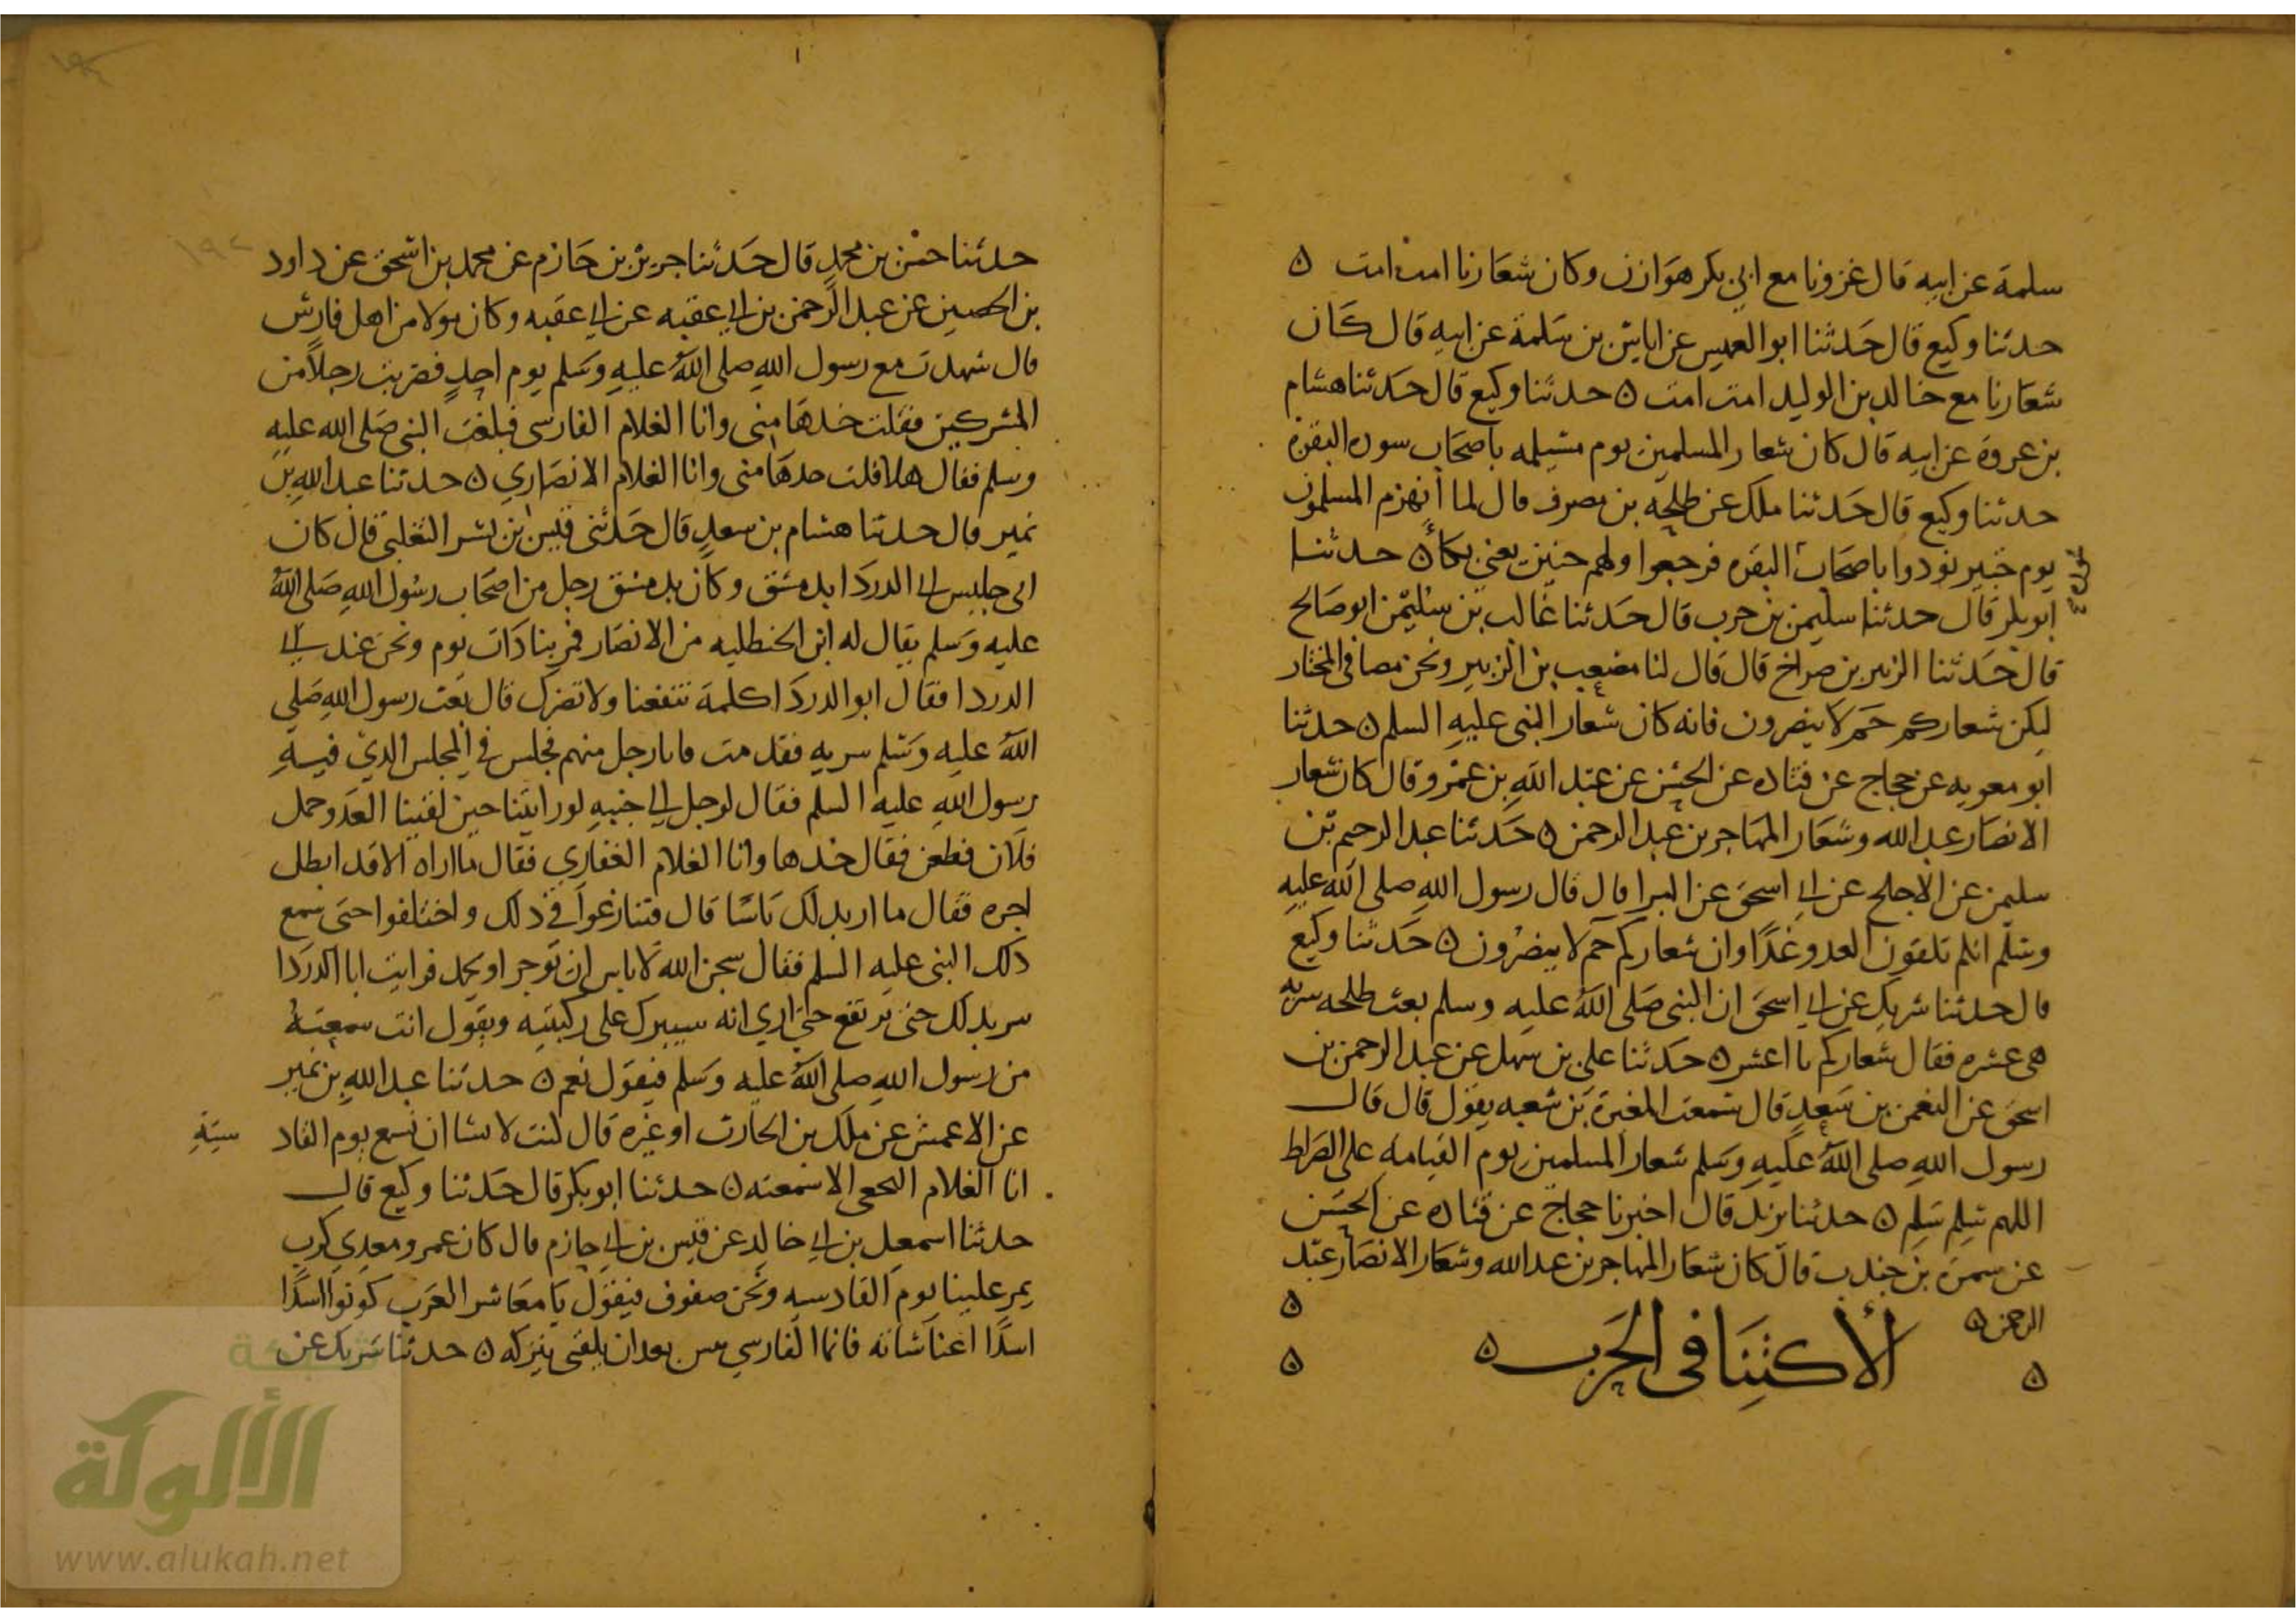 سلمة عن ابيه قال غزونا مع ابي بكر هوازن وكان شعارنا امت امت ه
حدثنا وكيع قال حدثنا ابو العميس عن اياس بن سلمة عن ابيه قال كان
شعارنا مع خالد بن الوليد امت امت ه حدثنا وكيع قال حدثنا هشام
بن عروة عن ابيه قال كان شعار المسلمين يوم مسيلمه ياصحاب سوره البقرة
حدثنا وكيع قال حدثنا ملك عن طلحه بن مصرف قال لما انهزم المسلمون
يوم حنين نودوا ياصحاب البقره فرجعوا ولهم حنين يعني بكأ ه حدثنا
ابو بكر قال حدثنا سليمن بن حرب قال حدثنا غالب بن سليمن ابو صالح
قال حدثنا الزبير بن صراخ قال قال لنا مصعب بن الزبير ونحن مصافي المختار
ليكن شعاركم حم لا ينصرون فانه كان شعار النبي عليه السلم ه حدثنا
ابو معويه عن حجاج عن قتاده عن الحسن عن عبد الله بن عمرو قال كان شعار
الانصار عبد الله وشعار المهاجرين عبد الرحمن ه حدثنا عبد الرحيم بن
سليمن عن الاجلح عن ابي اسحق عن البرا قال قال رسول الله صلى الله عليه
وسلم انكم تلقون العدو غدا وان شعاركم حم لا ينصرون ه حدثنا وكيع
قال حدثنا شريك عن ابي اسحق ان النبي صلى الله عليه وسلم بعث طلحه سريه
هي عشره فقال شعاركم يا اعشر ه حدثنا علي بن سهل عن عبد الرحمن بن
اسحق عن النعمن بن سعد قال سمعت المغيرة بن شعبه يقول قال قال
رسول الله صلى الله عليه وسلم شعار المسلمين يوم القيامه على الصراط
اللهم سلم سلم ه حدثنا يزيد قال اخبرنا حجاج عن قتاده عن الحسن
عن سمرة بن جندب قال كان شعار المهاجرين عبد الله وشعار الانصار عبد
الرحمن ه
الاكتنا في الحرب ه
حدثنا حسن بن محمد قال حدثنا جرير بن حازم عن محمد بن اسحق عن داود
بن الحصين عن عبد الرحمن بن ابي عقبه عن ابي عقبه وكان مولا من اهل فارس
قال شهدت مع رسول الله صلى الله عليه وسلم يوم احد فضربت رجلا من
المشركين فقلت خدها مني وانا الغلام الفارسي فبلغت النبي صلى الله عليه
وسلم فقال هلا قلت خدها مني وانا الغلام الانصاري ه حدثنا عبد الله بن
نمير قال حدثنا هشام بن سعد قال حدثني قيس بن بشر التغلبي قال كان
ابي جليس ابي الدردا بدمشق وكان بدمشق رجل من اصحاب رسول الله صلى الله
عليه وسلم يقال له ابن الحنطليه من الانصار فمر بنا ذات يوم ونحن عند ابي
الدردا فقال ابو الدردا كلمة تنفعنا ولا تضرك قال بعث رسول الله صلى
الله عليه وسلم سريه فقدمت فاتا رجل منهم فجلس في المجلس الدي فيه
رسول الله عليه السلم فقال لرجل الي جنبه لو رايتنا حين لقينا العدو حمل
فلان فطعن فقال خدها وانا الغلام الغفاري فقال ما اراه الا قد ابطل
اجره فقال ما اري بدلك باسا قال فتنازعوا في ذلك واختلفوا حتى سمع
دلك النبي عليه السلم فقال سبحن الله لا باس ان توجر او يحمد فرايت ابا الدردا
سر بدلك حتى يرتفع حتى اري انه سيبرك على ركبتيه ويقول انت سمعته
من رسول الله صلى الله عليه وسلم فيقول نعم ه حدثنا عبد الله بن نمير
عن الاعمش عن ملك بن الحارث او غيره قال كنت لا تشا ان تسمع يوم القاد سيه
انا الغلام النخعي الا سمعته ه حدثنا ابو بكر قال حدثنا وكيع قال
حدثنا اسمعيل بن ابي خالد عن قيس بن ابي حازم قال كان عمرو معدي كرب
يمر علينا يوم القادسيه ونحن صفوف فيقول يا معاشر العرب كونوا اسدا
اسدا اغنا شانه فانما الفارسي تيس بعد ان يلقي نيزكه ه حدثنا شريك عن
شبكة
الألوكة
www.alukah.net